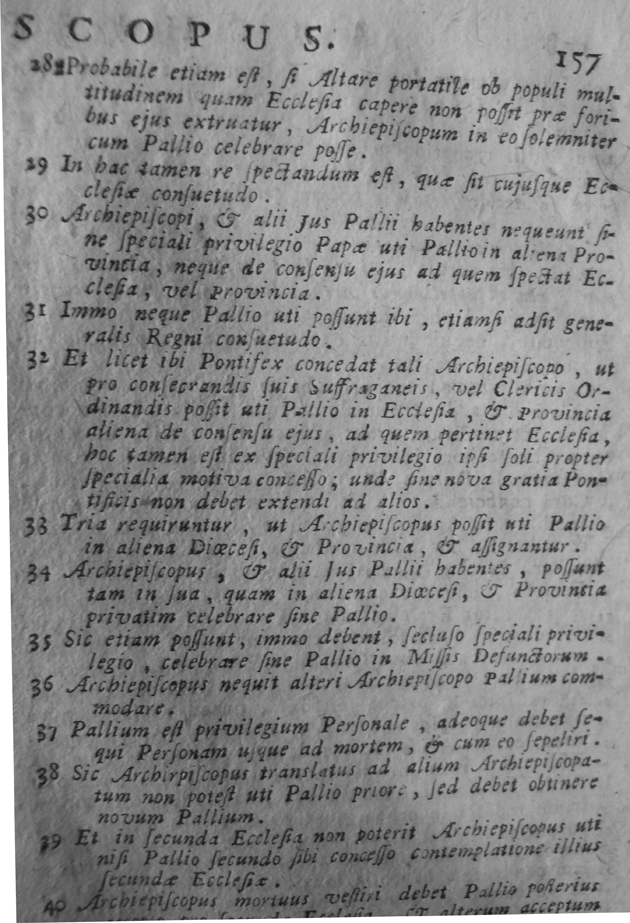 SCOPUS.
157
28 Probabile etiam eſt, ſi Altare portatile ob populi mul-
titudinem quam Eccleſia capere non poſſit præ fori-
bus ejus extruatur, Archiepiſcopum in eo ſolemniter
cum Pallio celebrare poſſe.
29 In hac tamen re ſpectandum eſt, quæ ſit cujuſque Ec-
cleſiæ conſuetudo.
30 Archiepiſcopi, & alii Jus Pallii habentes nequeunt ſi-
ne ſpeciali privilegio Papæ uti Pallio in aliena Pro-
vincia, neque de conſenſu ejus ad quem ſpectat Ec-
cleſia, vel Provincia.
31 Immo neque Pallio uti poſſunt ibi, etiamſi adſit gene-
ralis Regni conſuetudo.
32 Et licet ibi Pontifex concedat tali Archiepiſcopo, ut
pro conſecrandis ſuis Suffraganeis, vel Clericis Or-
dinandis poſſit uti Pallio in Eccleſia, & Provincia
aliena de conſenſu ejus, ad quem pertinet Eccleſia,
hoc tamen eſt ex ſpeciali privilegio ipſi ſoli propter
ſpecialia motiva conceſſo; unde ſine nova gratia Pon-
tificis non debet extendi ad alios.
33 Tria requiruntur, ut Archiepiſcopus poſſit uti Pallio
in aliena Diœceſi, & Provincia, & aſſignantur.
34 Archiepiſcopus, & alii Jus Pallii habentes, poſſunt
tam in ſua, quam in aliena Diœceſi, & Provincia
privatim celebrare ſine Pallio.
35 Sic etiam poſſunt, immo debent, ſecluſo ſpeciali privi-
legio, celebrare ſine Pallio in Miſſis Defunctorum.
36 Archiepiſcopus nequit alteri Archiepiſcopo Pallium com-
modare.
37 Pallium eſt privilegium Perſonale, adeoque debet ſe-
qui Perſonam uſque ad mortem, & cum eo ſepeliri.
38 Sic Archirpiſcopus translatus ad alium Archiepiſcopa-
tum non poteſt uti Pallio priore, ſed debet obtinere
novum Pallium.
39 Et in ſecunda Eccleſia non poterit Archiepiſcopus uti
niſi Pallio ſecundo ſibi conceſſo contemplatione illius
ſecundæ Eccleſiæ.
40 Archiepiſcopus mortuus veſtiri debet Pallio poſterius
Eccleſia, & alterum acceptum